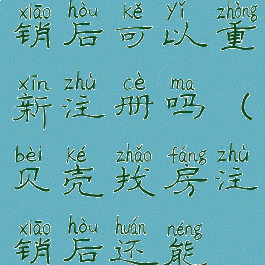 xiāo hòu kě yǐ zhòng
销后可以重
xīn zhù cè ma
新注册吗（
bèi ké zhǎo fáng zhù
贝壳找房注
xiāo hòu huán néng
销后还能